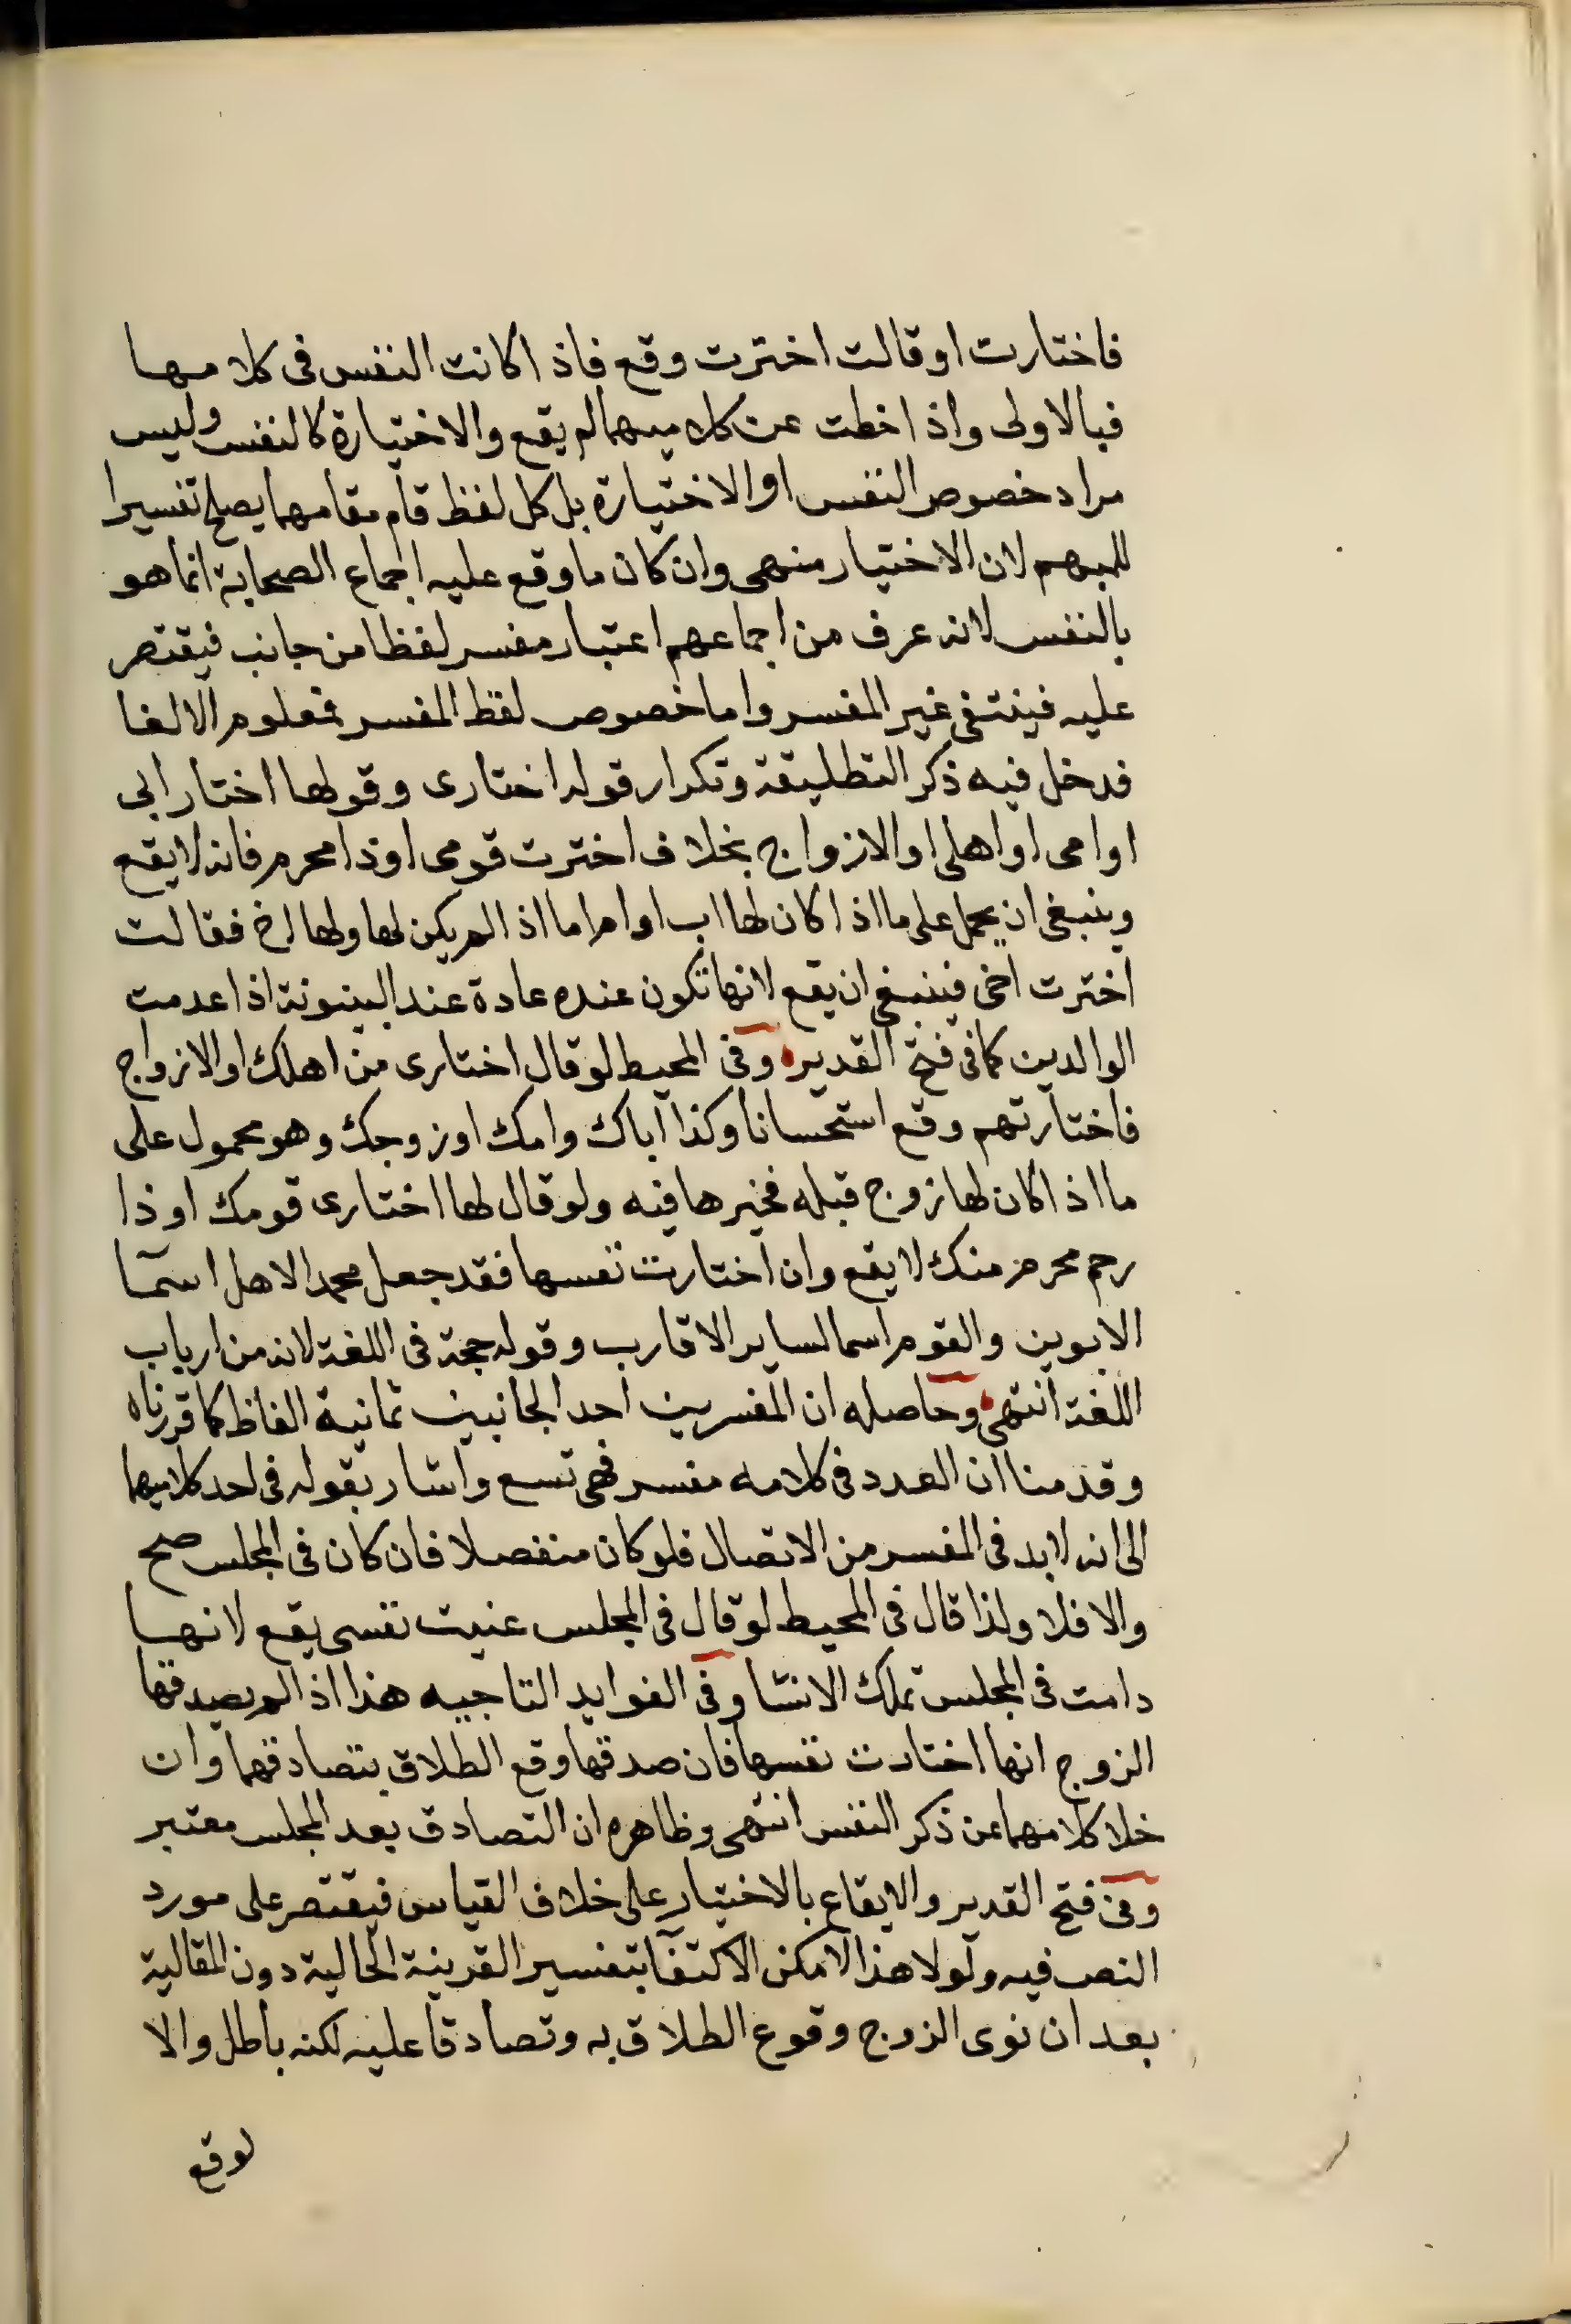 فاختارت او قالت اخترت وقع فاذا كانت النفس فى كلامها
فبالاولى واذا خطت عن كلاميهما لم يقع والاختيارة كالنفس وليس
مراد خصوص النفس او الاختيارة بل كل لفظ قام مقامهما يصلح تفسيرا
للمبهم لان الاختيار منهى وان كان ما وقع عليه اجماع الصحابة انما هو
بالنفس لانه عرف من اجماعهم اعتبار مفسر لفظا من جانب فيقتصر
عليه فينتفى غير المفسر واما خصوص لفظ المفسر فمعلوم الالغا
فدخل فيه ذكر التطليقة وتكرار قوله اختارى وقولها اختار ابى
او امى او اهلى او الازواج بخلاف اخترت قومى او ذا محرم فانه لا يقع
وينبغى ان يحمل على ما اذا كان لها اب او ام اما اذا لم يكن لها ولها اخ فقالت
اخترت اخى فينبغى ان يقع لانها تكون عنده عادة عند البينونة اذا عدمت
الوالدين كما فى فتح القدير وفى المحيط لو قال اختارى من اهلك او الازواج
فاختارتهم وقع استحسانا وكذا اباك وامك او زوجك وهو محمول على
ما اذا كان لها زوج قبله فخيرها فيه ولو قال لها اختارى قومك او ذا
رحم محرم منك لا يقع وان اختارت نفسها فقد جعل محمد الاهل اسما
الابوين والقوم اسما لساير الاقارب وقوله حجة فى اللغة لانه من ارباب
اللغة انتهى وحاصله ان المفسر من احد الجانبين ثمانية الفاظ كما قررناه
وقدمنا ان العدد فى كلامه مفسر فهى تسع واشار بقوله فى احد كلاميهما
الى انه لا بد فى المفسر من الاتصال فلو كان منفصلا فان كان فى المجلس صح
والا فلا ولذا قال فى المحيط لو قال فى المجلس عنيت نفسى يقع لانها
دامت فى المجلس تملك الانشا وفى الفوايد التاجيه هذا اذا لم يصدقها
الزوج انها اختارت نفسها فان صدقها وقع الطلاق بتصادقهما وان
خلا كلامهما عن ذكر النفس انتهى وظاهره ان التصادق بعد المجلس معتبر
وفى فتح القدير والايقاع بالاختيار على خلاف القياس فيقتصر على مورد
النص فيه ولولا هذا لامكن الاكتفا بتفسير القرينة الحالية دون المقالية
بعد ان نوى الزوج وقوع الطلاق به وتصادقا عليه لكنه باطل والا
لوقع